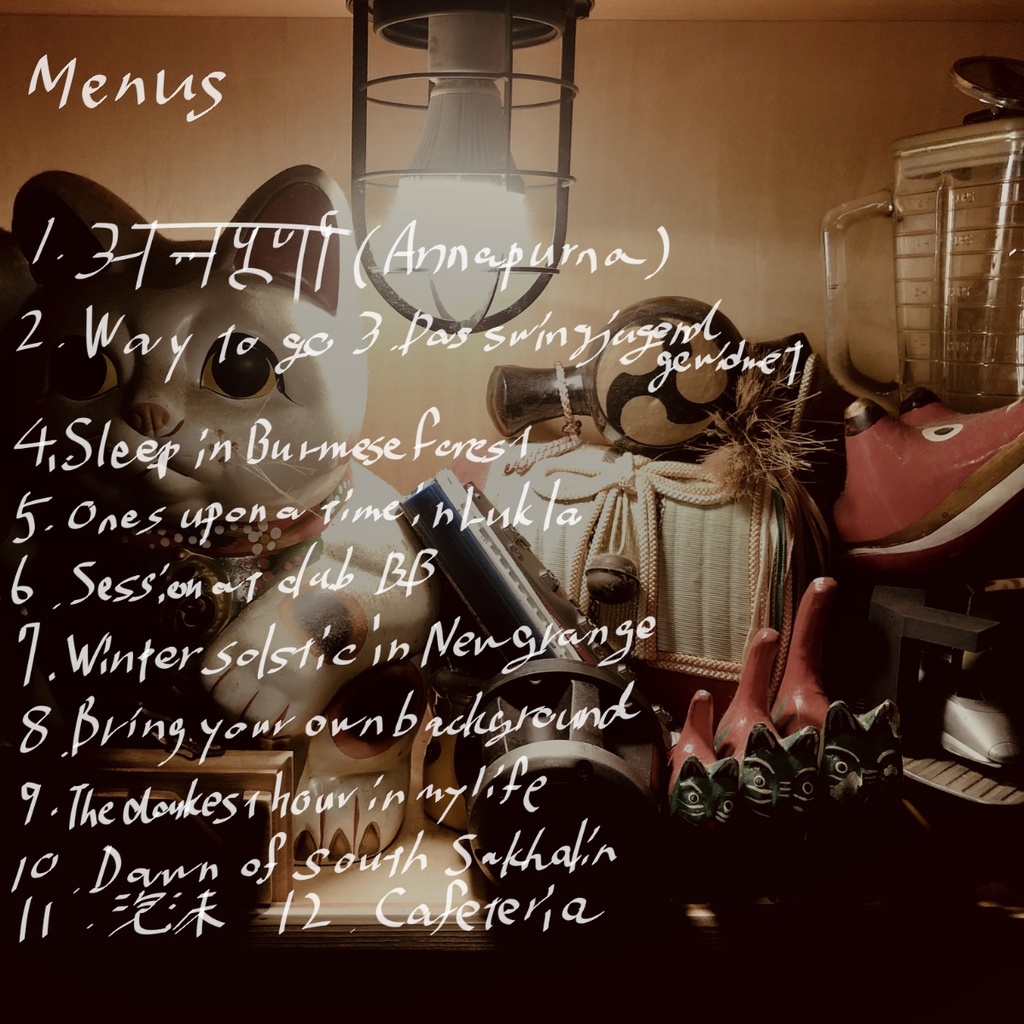 Menus
1. अन्नपुर्णा (Annapurna)
2. Way to go 3. Das swingjugend
gewidmet
4. Sleep in Burmese forest
5. Ones upon a time in Lukla
6. Session at club BB
7. Winter solstic in Newgrange
8. Bring your own background
9. The darkest hour in my life
10. Dawn of south Sakhalin
11. 泡沫 12. Cafeteria